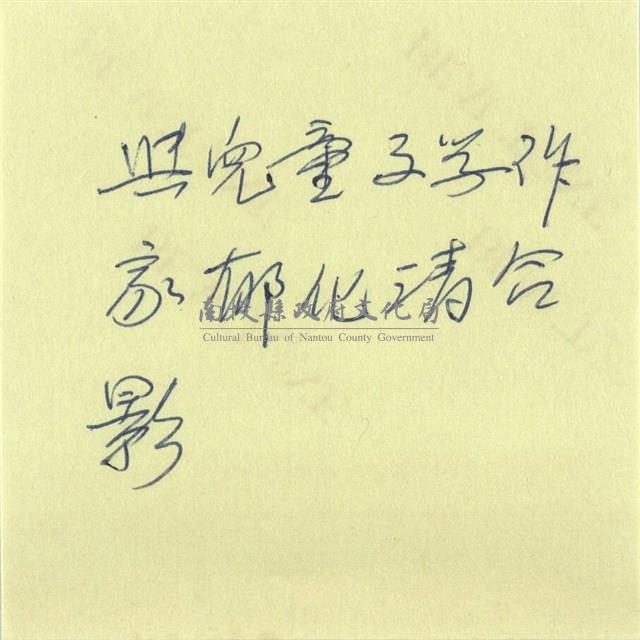 與兒童文学作
家郁化清合
影
南投縣政府文化局
Cultural Bureau of Nantou County Government